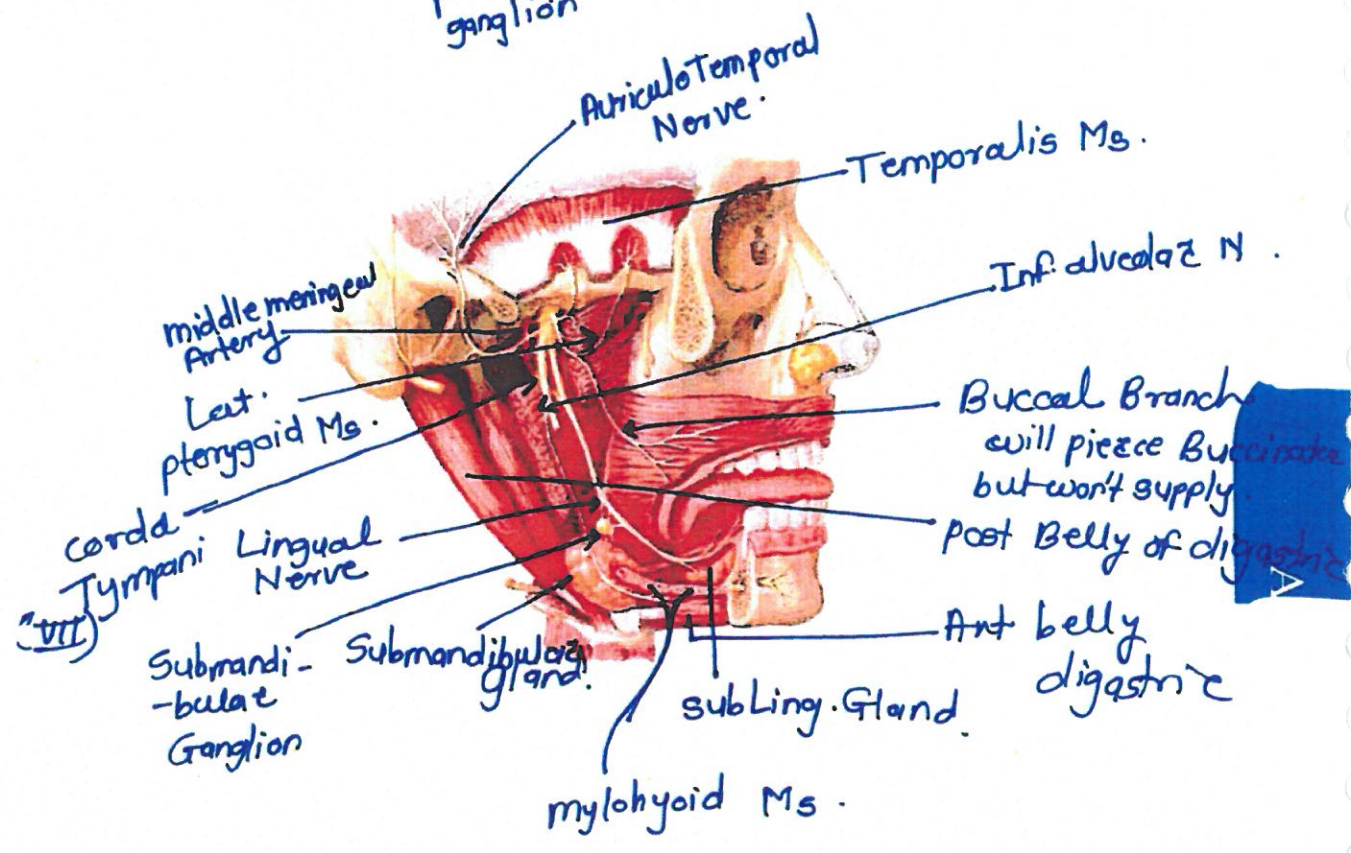 ganglion
AuriculoTemporal
Nerve.
Temporalis Ms.
Inf. alveolar N.
middle meningeal
Artery
Lat.
pterygoid Ms.
Buccal Branch
will pierce Buccinator
but won't supply
corda
Tympani
(VII)
Lingual
Nerve
post Belly of digastric
Submandi-
-bular
Ganglion
Submandibular
gland.
Ant belly
digastric
subLing. Gland.
mylohyoid Ms.